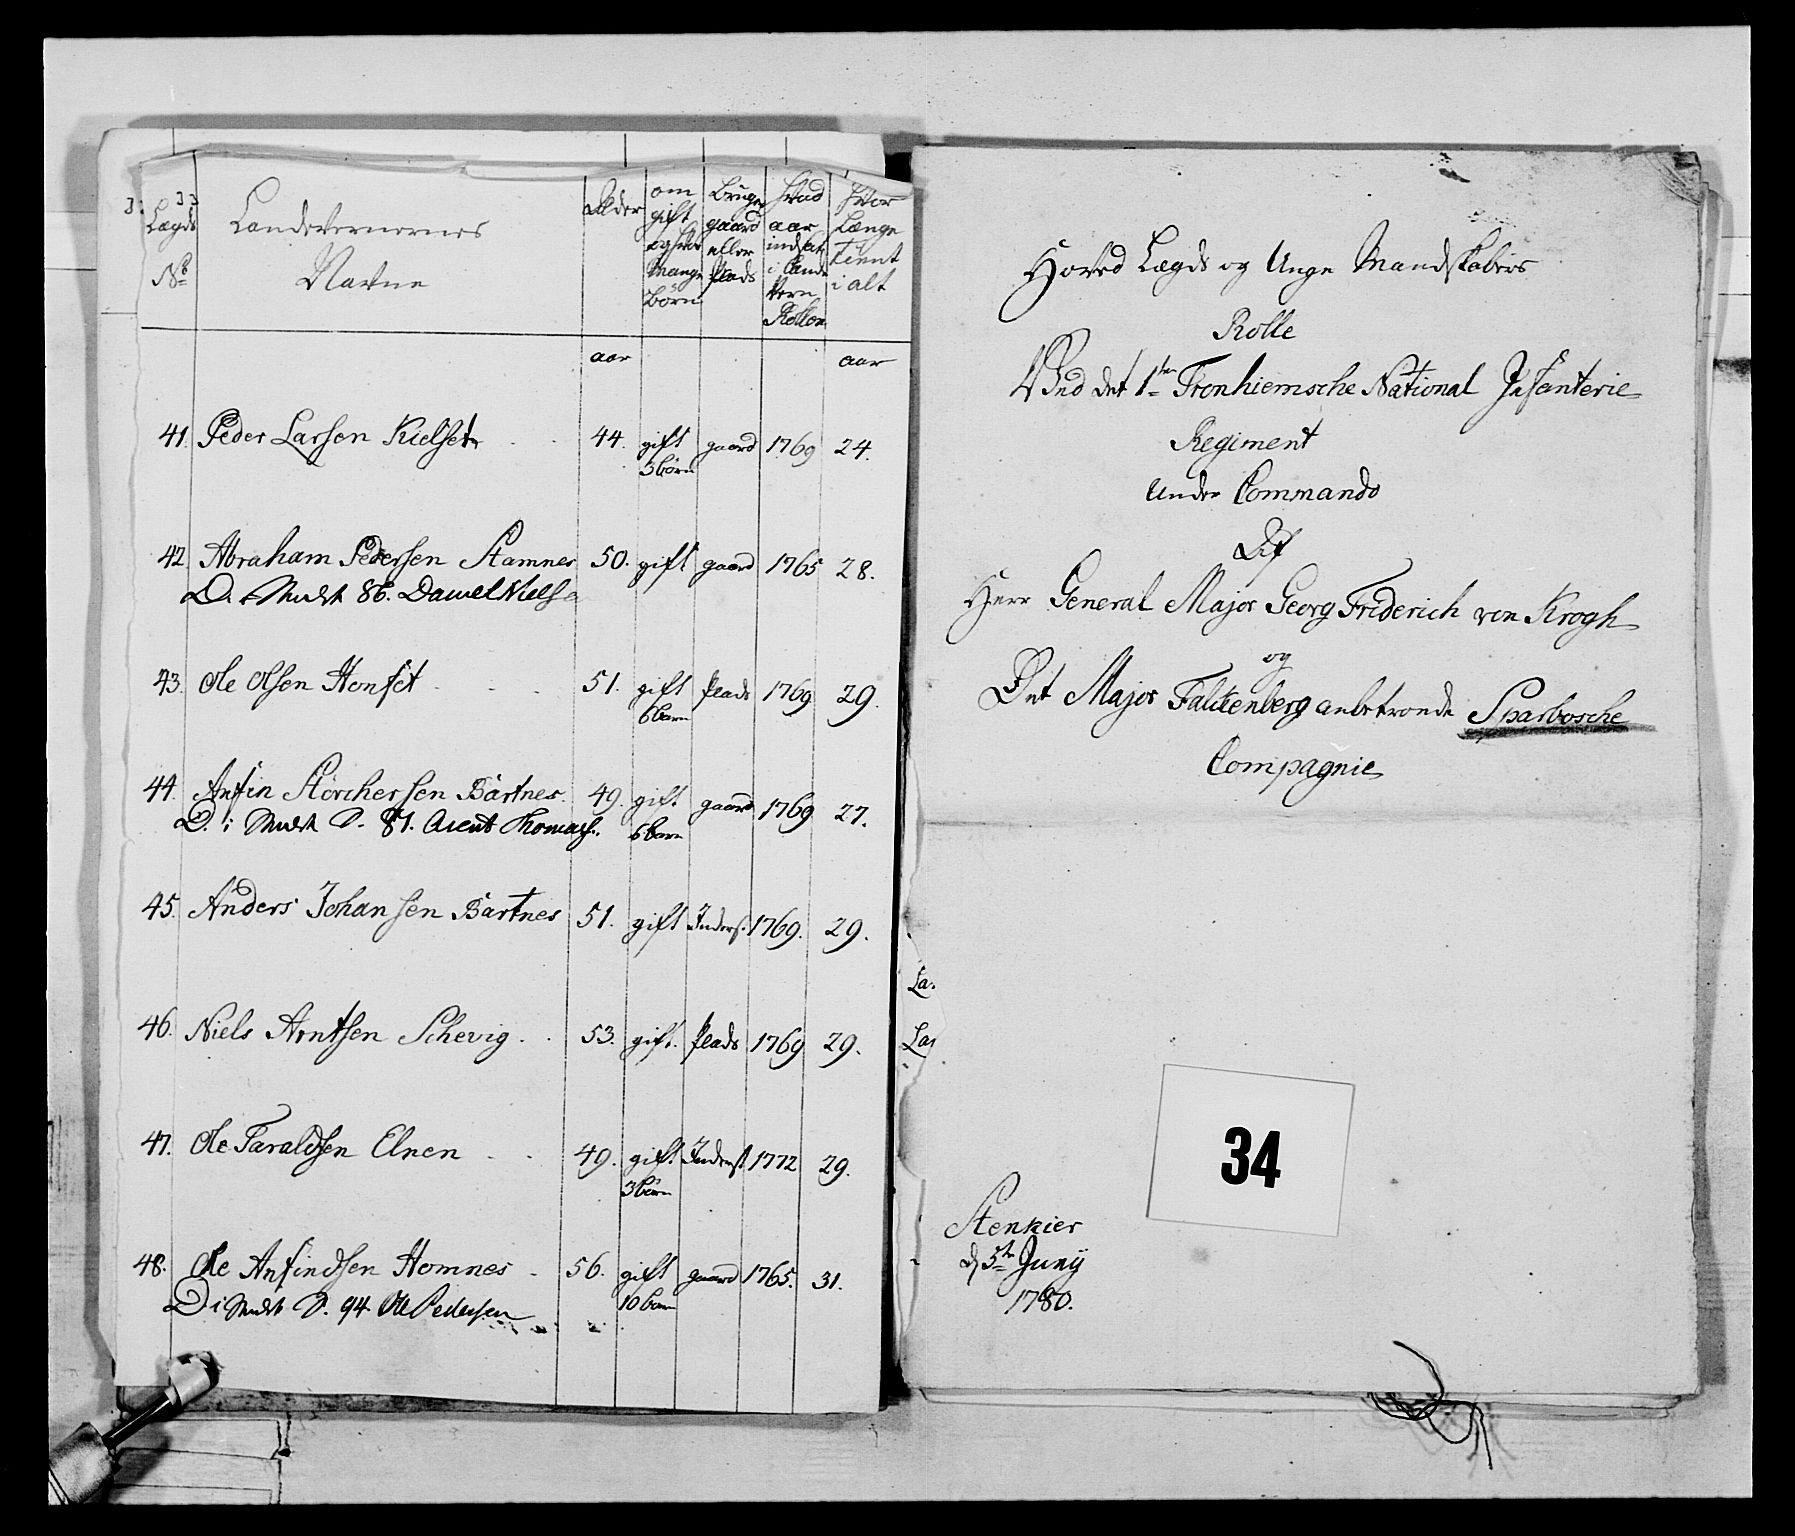 Lægds
No
Landevernernes
Navne
Alder
om
gift
og hvor
Mange
Börn
Bruger
gaard
eller
Plads
Hvad
aar
indsat
i Lande
Vern
Rollen
Hvor
Længe
tient
i alt
aar
aar
41. Peder Larsen Kielset 44. gift gaard 1769 24.
3 börn
42 Abraham Pedersen Stamnes 50. gift gaard 1765 28.
D. 86. Daniel Niels
43. Ole Olsen Honset 51. gift Plads 1769 29.
6 barn
44. Anfin Störchersen Bartnes 49. gift gaard 1769 27.
D. i P. 87. Arent Thomas.
6 barn
45. Anders Johansen Bartnes 51. gift Inderst 1769. 29.
46. Niels Arntsen Schevig 53. gift. Plads 1769 29.
47. Ole Taraldsen Elnen 49. gift Inderst 1772 29.
3 börn
48. Ole Anfindsen Homnes 56. gift gaard 1765. 31.
D i P. 94 Ole Pedersen
10 barn
Hoved Lægds og Unge Mandskabers
Rolle
Ved det 1te Tronhiemsche National Infanterie
Regiment
Under Commando
Af
Herr General Major Georg Friderich von Krogh
og
Det Major Falkenberg anbetroede Sparbosche
Compagnie
La.
La
34
Stenkier
d 5te Juny
1780.